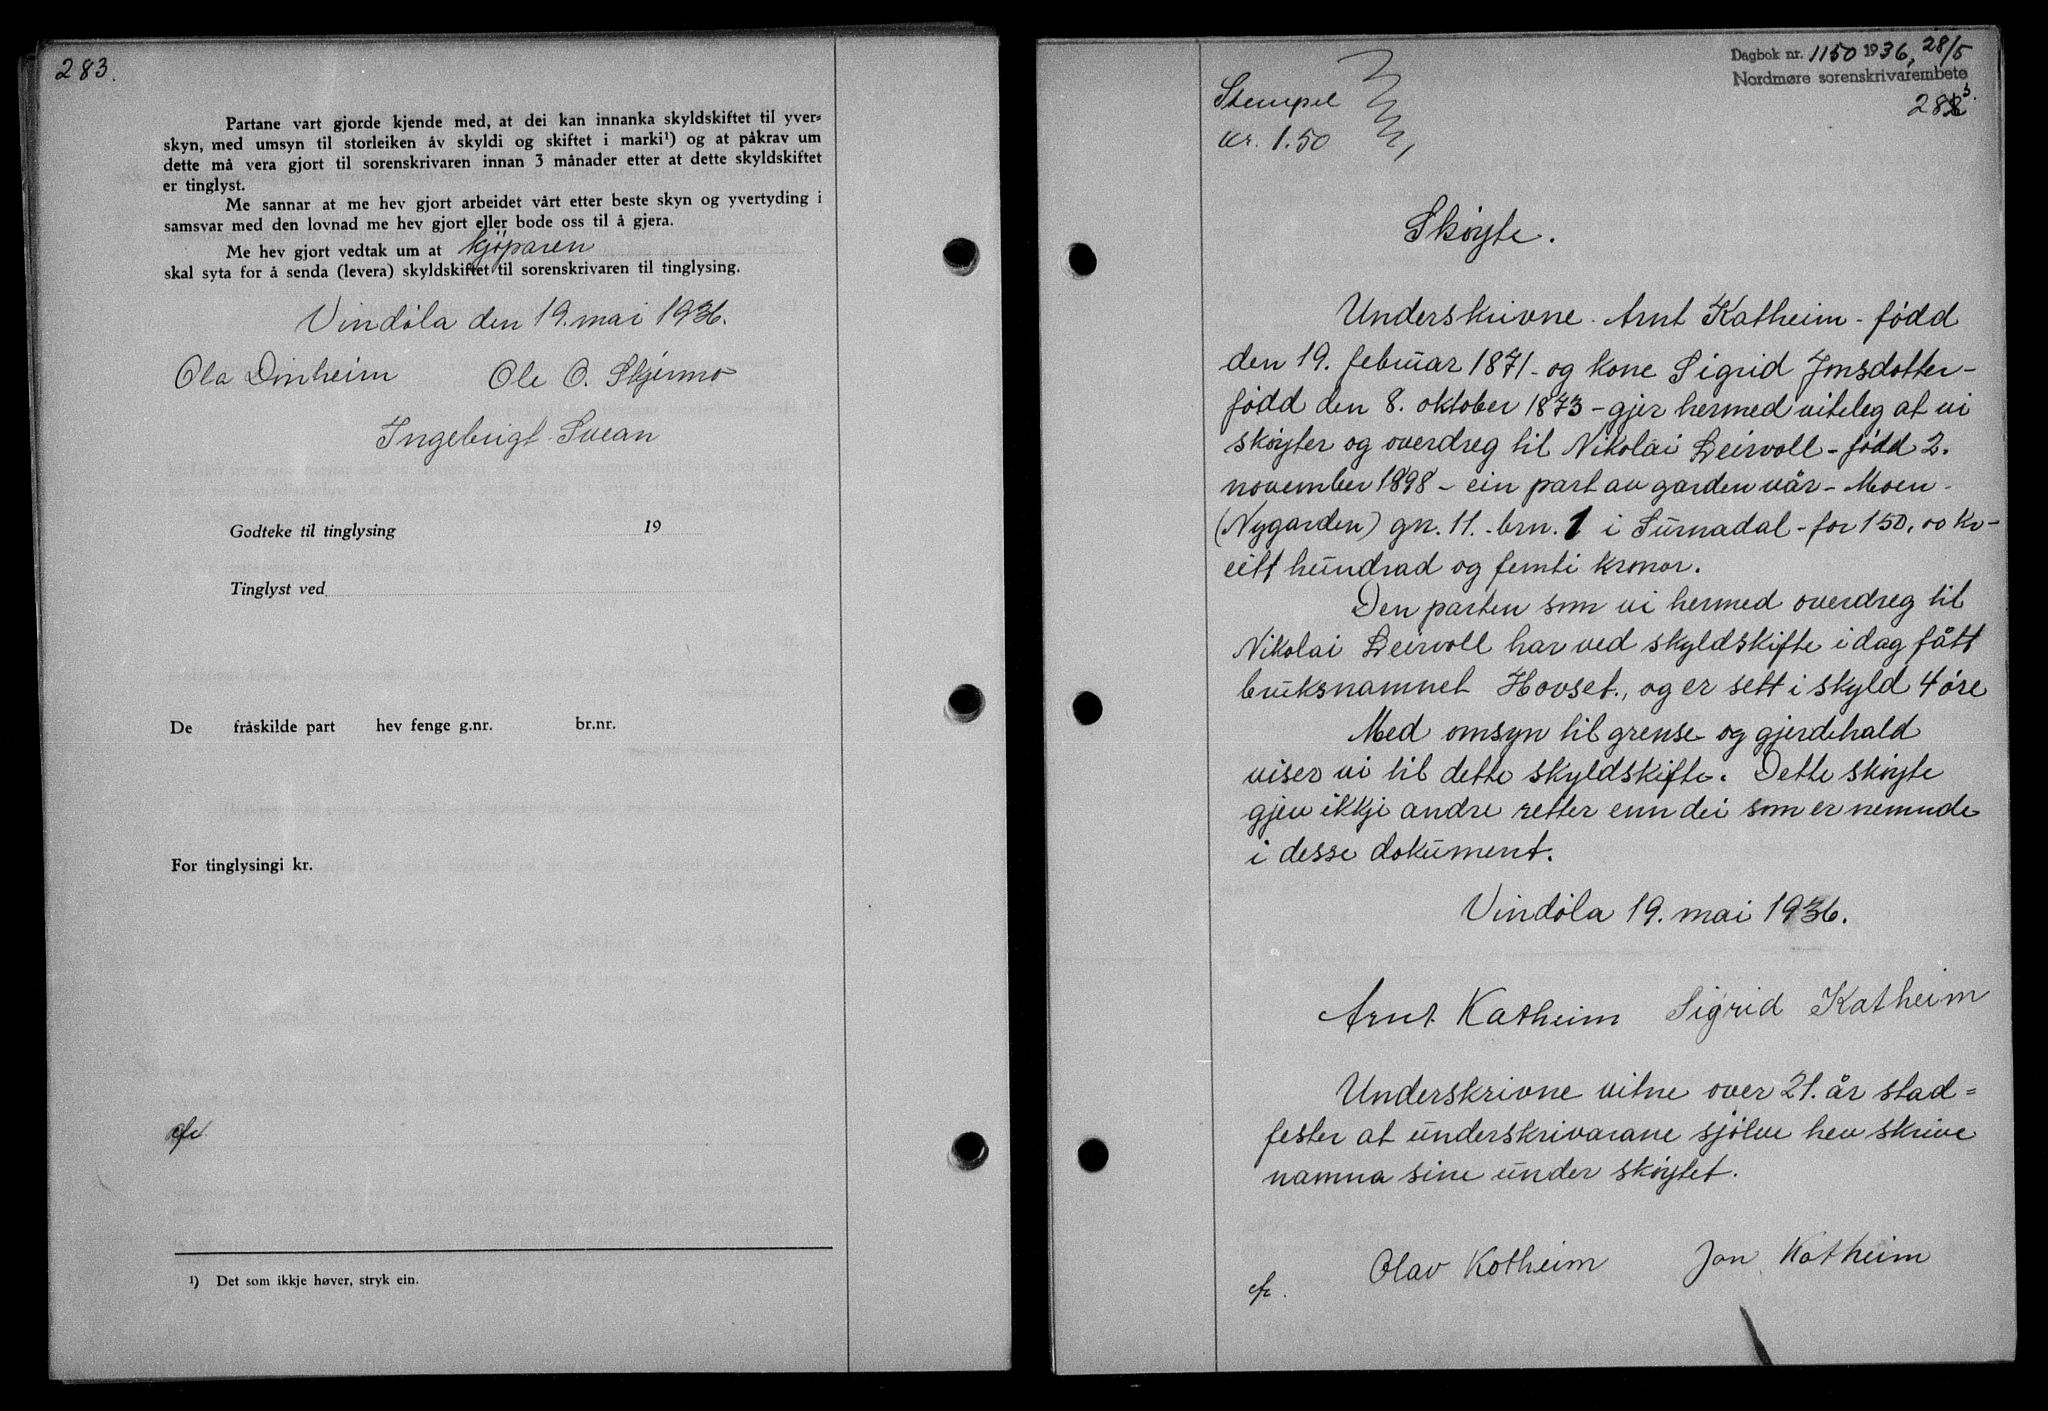 283.
Partane vart gjorde kjende med, at dei kan innanka skyldskiftet til yver=
skyn, med umsyn til storleiken åv skyldi og skiftet i marki¹) og at påkrav um
dette må vera gjort til sorenskrivaren innan 3 månader etter at dette skyldskiftet
er tinglyst.
Me sannar at me hev gjort arbeidet vårt etter beste skyn og yvertyding i
samsvar med den lovnad me hev gjort eller bode oss til å gjera.
Me hev gjort vedtak um at kjøparen
skal syta for å senda (levera) skyldskiftet til sorenskrivaren til tinglysing.
Vindøla den 19. mai 1936.
Ola Dønheim Ole O. Skjermo
Ingebrigt Svean
Godteke til tinglysing 19
Tinglyst ved
De fråskilde part hev fenge g.nr. br.nr.
For tinglysingi kr.
efr.
¹) Det som ikkje høver, stryk ein.
Dagbok nr. 1150 1936, 28/5
Nordmøre sorenskrivarembete
283.
Stempel
kr. 1.50
Skøyte.
Underskrivne Arnt Katheim - fødd
den 19. februar 1871 - og kone Sigrid Jonsdotter -
fødd den 8. oktober 1873 - gjer hermed viteleg at vi
skøyter og overdreg til Nikolai Leirvoll - fødd 2.
november 1898 - ein part av garden vår - Moen -
(Nygarden) gn. 11. brn. 1 i Surnadal - for 150,00 kr -
eitt hundrad og femti kronor.
Den parten som vi hermed overdreg til
Nikolai Leirvoll har ved skyldskifte i dag fått
bruksnamnet Hovset., og er sett i skyld 4 øre
Med omsyn til grense og gjerdehald
viser vi til dette skyldskifte. Dette skøyte
gjev ikkje andre retter enn dei som er nemnde
i desse dokument.
Vindøla 19. mai 1936.
Arnt Katheim Sigrid Katheim
Underskrivne vitne over 21. år stad=
fester at underskrivarane sjølve hev skrive
namna sine under skøytet.
Olav Kotheim Jon Kotheim
efr.